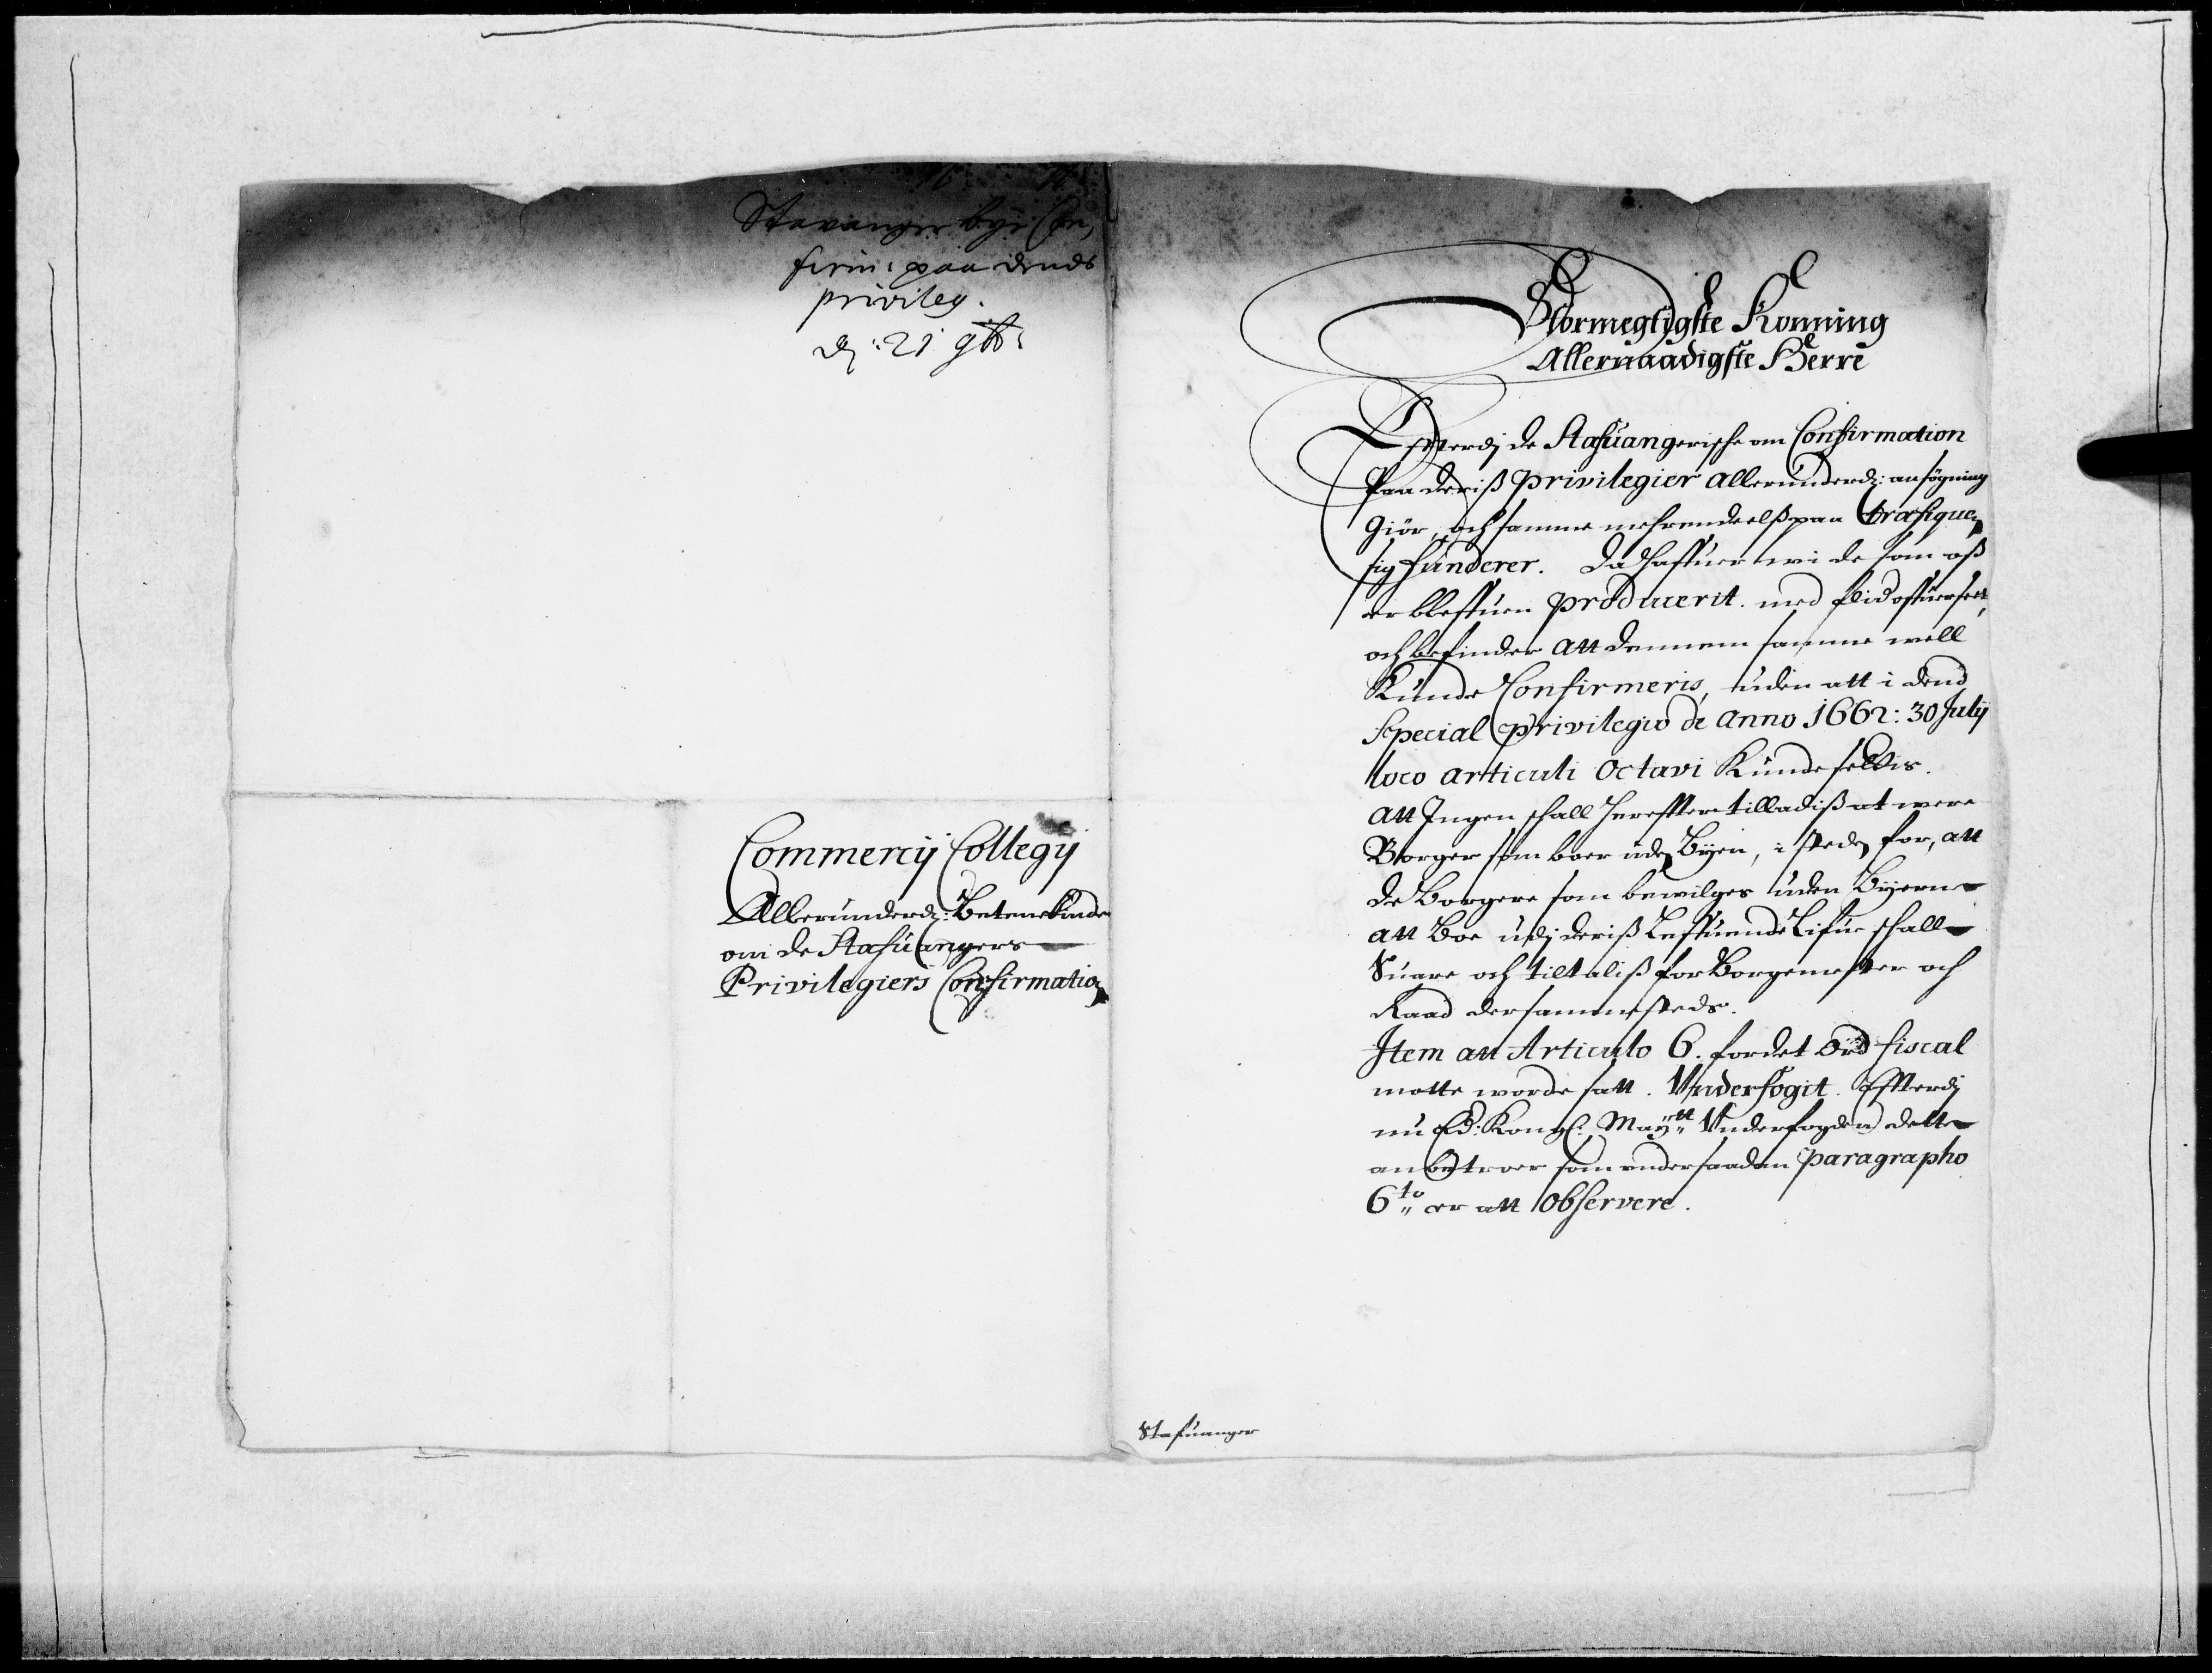 Stavanger byes Con,
firm: paa dends
privileg.
d: 21 9br:
Commercij Collegij
Allerunderd: Betenckinde
om de Stafuangers
Privilegiers Confirmation
Stormegtigste Konning
Allernaadigste Herre
Efftterdj de Stafuangerische om Confirmation
Paa deriss Privilegier allerunderd: ansögning
Giör, och samme mehrendeelss paa trafiquen
sig funderer. Da haffuer wi de som oss
er bleffuen producerit med flid offuerseet,
och befinder att dennem samme well
Kunde Confirmeris, uden att i dend
Special Privilegio de Anno 1662: 30 July
loco articuli Octavi Kunde settis.
att Ingen schall hereffter tilladiss at were
Borger som boer uden Byen, i steden for, att
de Borgere som bewilges uden Byerne
att Boe udj deriss Leffuende Lifue schall
Suare och tiltaliss for Borgemester och
Raad dersammesteds.
Item att Articulo 6. for det Ord fiscal
motte worde satt. Underfogit. Effterdj
nu Ed: Kongl: Maytt Underfogden dette
anbetroer som undersaadan paragrapho
6to er att Observere.
Stafuanger